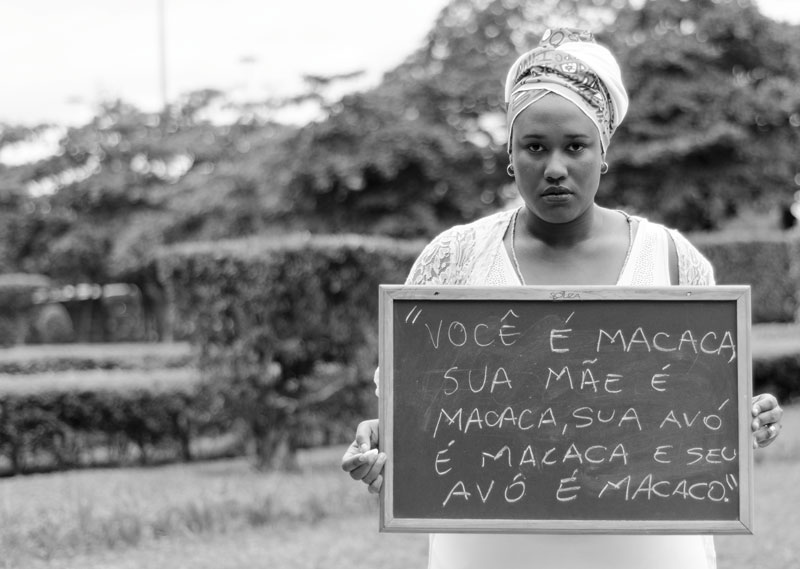 "VOCÊ É MACACA,
SUA MÃE É
MACACA, SUA AVÓ
É MACACA E SEU
AVÔ É MACACO."